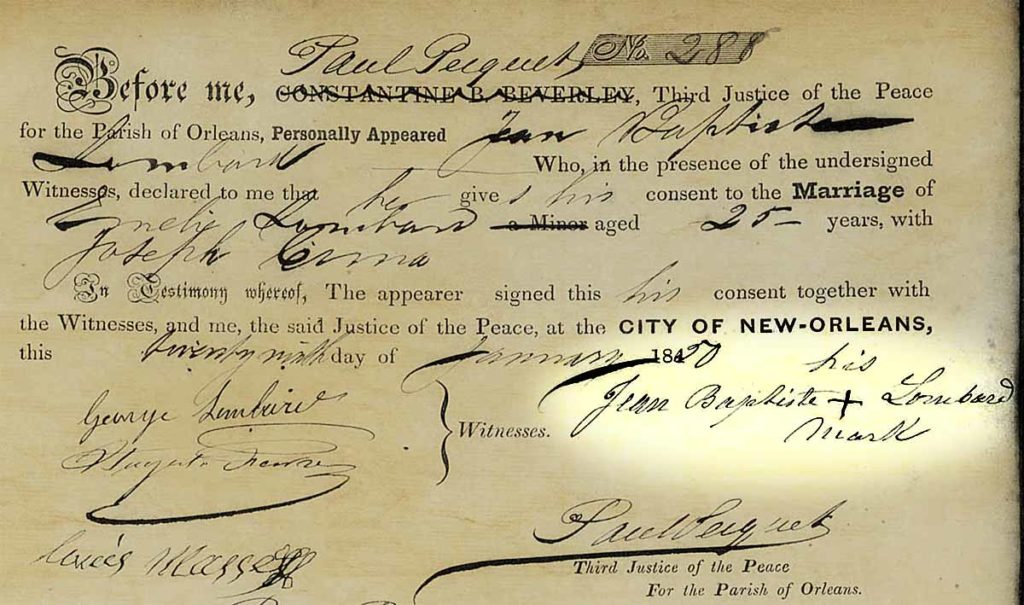 Paul Pecquet No. 288
Before me, CONSTANTINE B. BEVERLEY, Third Justice of the Peace
for the Parish of Orleans, Personally Appeared Jean Baptiste
Lombard Who, in the presence of the undersigned
Witnesses, declared to me that he give s his consent to the Marriage of
Emelie Lombard a Minor aged 25 years, with
Joseph
In Testimony whereof, The appearer signed this his consent together with
the Witnesses, and me, the said Justice of the Peace, at the CITY OF NEW-ORLEANS,
this twenty ninth day of January 1850
his
George Lombard
Jean Baptiste + Lombard
Witnesses.
mark
Louis
Paul Pecquet
Third Justice of the Peace
For the Parish of Orleans.